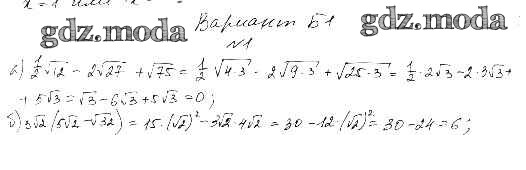 x = 1 или x =
Вариант Б1
gdz.moda gdz.moda
№1
а) 1/2 √12 - 2√27 + √75 = 1/2 √(4·3) - 2√(9·3) + √(25·3) = 1/2 · 2√3 - 2·3√3 +
+ 5√3 = √3 - 6√3 + 5√3 = 0;
б) 3√2 (5√2 - √32) = 15·(√2)² - 3√2·4√2 = 30 - 12·(√2)² = 30 - 24 = 6;